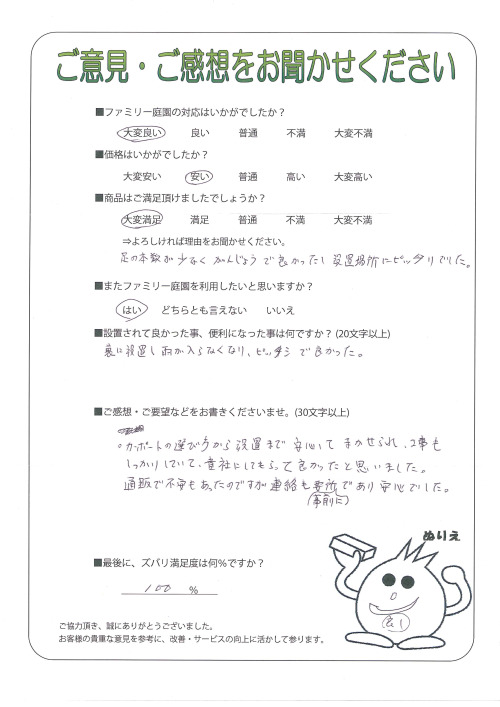 ご意見・ご感想をお聞かせください
■ファミリー庭園の対応はいかがでしたか？
大変良い 良い 普通 不満 大変不満
■価格はいかがでしたか？
大変安い 安い 普通 高い 大変高い
■商品はご満足頂けましたでしょうか？
大変満足 満足 普通 不満 大変不満
⇒よろしければ理由をお聞かせください。
足の本数が少なく がんじょうで良かったし 設置場所にピッタリでした。
■またファミリー庭園を利用したいと思いますか？
はい どちらとも言えない いいえ
■設置されて良かった事、便利になった事は何ですか？(20文字以上)
裏に設置し雨が入らなくなり、ピッタシで良かった。
■ご感想・ご要望などをお書きくださいませ。(30文字以上)
・カーポートの選び方から設置まで 安心して まかせられ、工事も
しっかりしていて、貴社にしてもらって良かったと思いました。
通販で不安もあったのですが連絡も であり安心でした。
(事前に)
■最後に、ズバリ満足度は何％ですか？
100 ％
ぬりえ
ご協力頂き、誠にありがとうございました。
お客様の貴重な意見を参考に、改善・サービスの向上に活かして参ります。